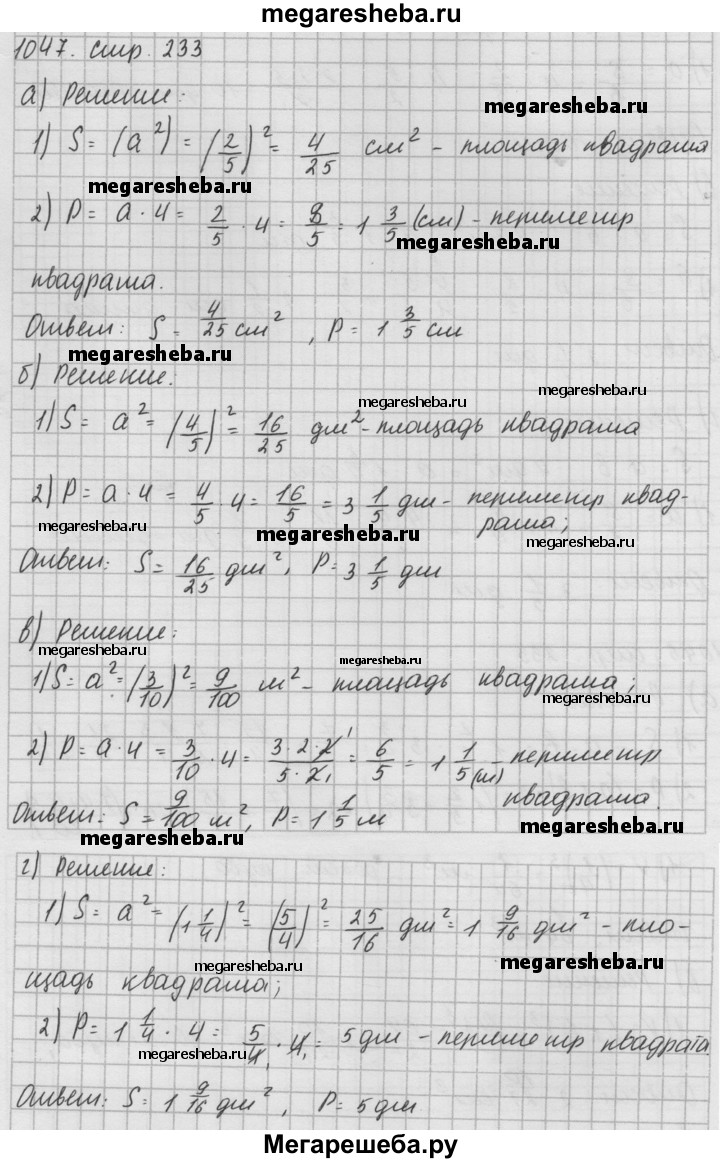 megaresheba.ru
1047. стр. 233
а) Решение:
megaresheba.ru
1) S = (a²) = (2/5)² = 4/25 см² - площадь квадрата
megaresheba.ru
2) P = a · 4 = 2/5 · 4 = 8/5 = 1 3/5 (см) - периметр
megaresheba.ru
квадрата.
Ответ: S = 4/25 см², P = 1 3/5 см
megaresheba.ru
б) Решение:
megaresheba.ru
megaresheba.ru
1) S = a² = (4/5)² = 16/25 дм² - площадь квадрата
2) P = a · 4 = 4/5 · 4 = 16/5 = 3 1/5 дм - периметр квад-
рата;
megaresheba.ru
megaresheba.ru
megaresheba.ru
Ответ: S = 16/25 дм², P = 3 1/5 дм
в) Решение:
megaresheba.ru
1) S = a² = (3/10)² = 9/100 м² - площадь квадрата;
megaresheba.ru
2) P = a · 4 = 3/10 · 4 = 3·2·2/5·2 = 6/5 = 1 1/5 (м) - периметр
квадрата.
Ответ: S = 9/100 м², P = 1 1/5 м
megaresheba.ru
megaresheba.ru
г) Решение:
1) S = a² = (1 1/4)² = (5/4)² = 25/16 дм² = 1 9/16 дм² - пло-
megaresheba.ru
megaresheba.ru
щадь квадрата;
2) P = 1 1/4 · 4 = 5/4 · 4 = 5 дм - периметр квадрата.
megaresheba.ru
megaresheba.ru
Ответ: S = 1 9/16 дм², P = 5 дм
Мегарешеба.ру